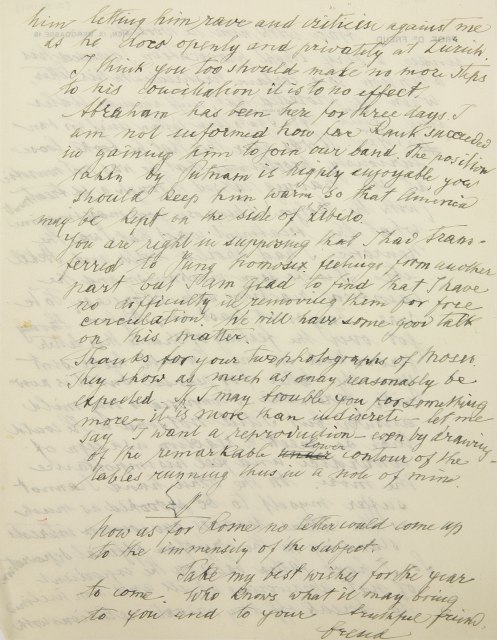 him letting him rave and criticise against me
as he does openly and privately at Zurich.
I think you too should make no more steps
to his conciliation it is to no effect.
Abraham has been here for three days. I
am not informed how far Rank succeeded
in gaining him to join our band. The position
taken by Putnam is highly enjoyable you
should keep him warm so that America
may be kept on the side of Libido.
You are right in supposing that I had trans-
ferred to Jung homosex. feelings from another
part but I am glad to find that I have
no difficulty in removing them for free
circulation. We will have some good talk
on this matter.
Thanks for your two photographs of Moses.
They show as much as may reasonably be
expected. If I may trouble you for something
more – it is more than indiscrete – let me
say I want a reproduction – even by drawing –
of the remarkable under lower contour of the
tables running thus in a note of mine.
Now as for Rome no letter could come up
to the immensity of the subject.
Take my best wishes for the year
to come. Who knows what it may bring
to you and to your faithful friend
Freud